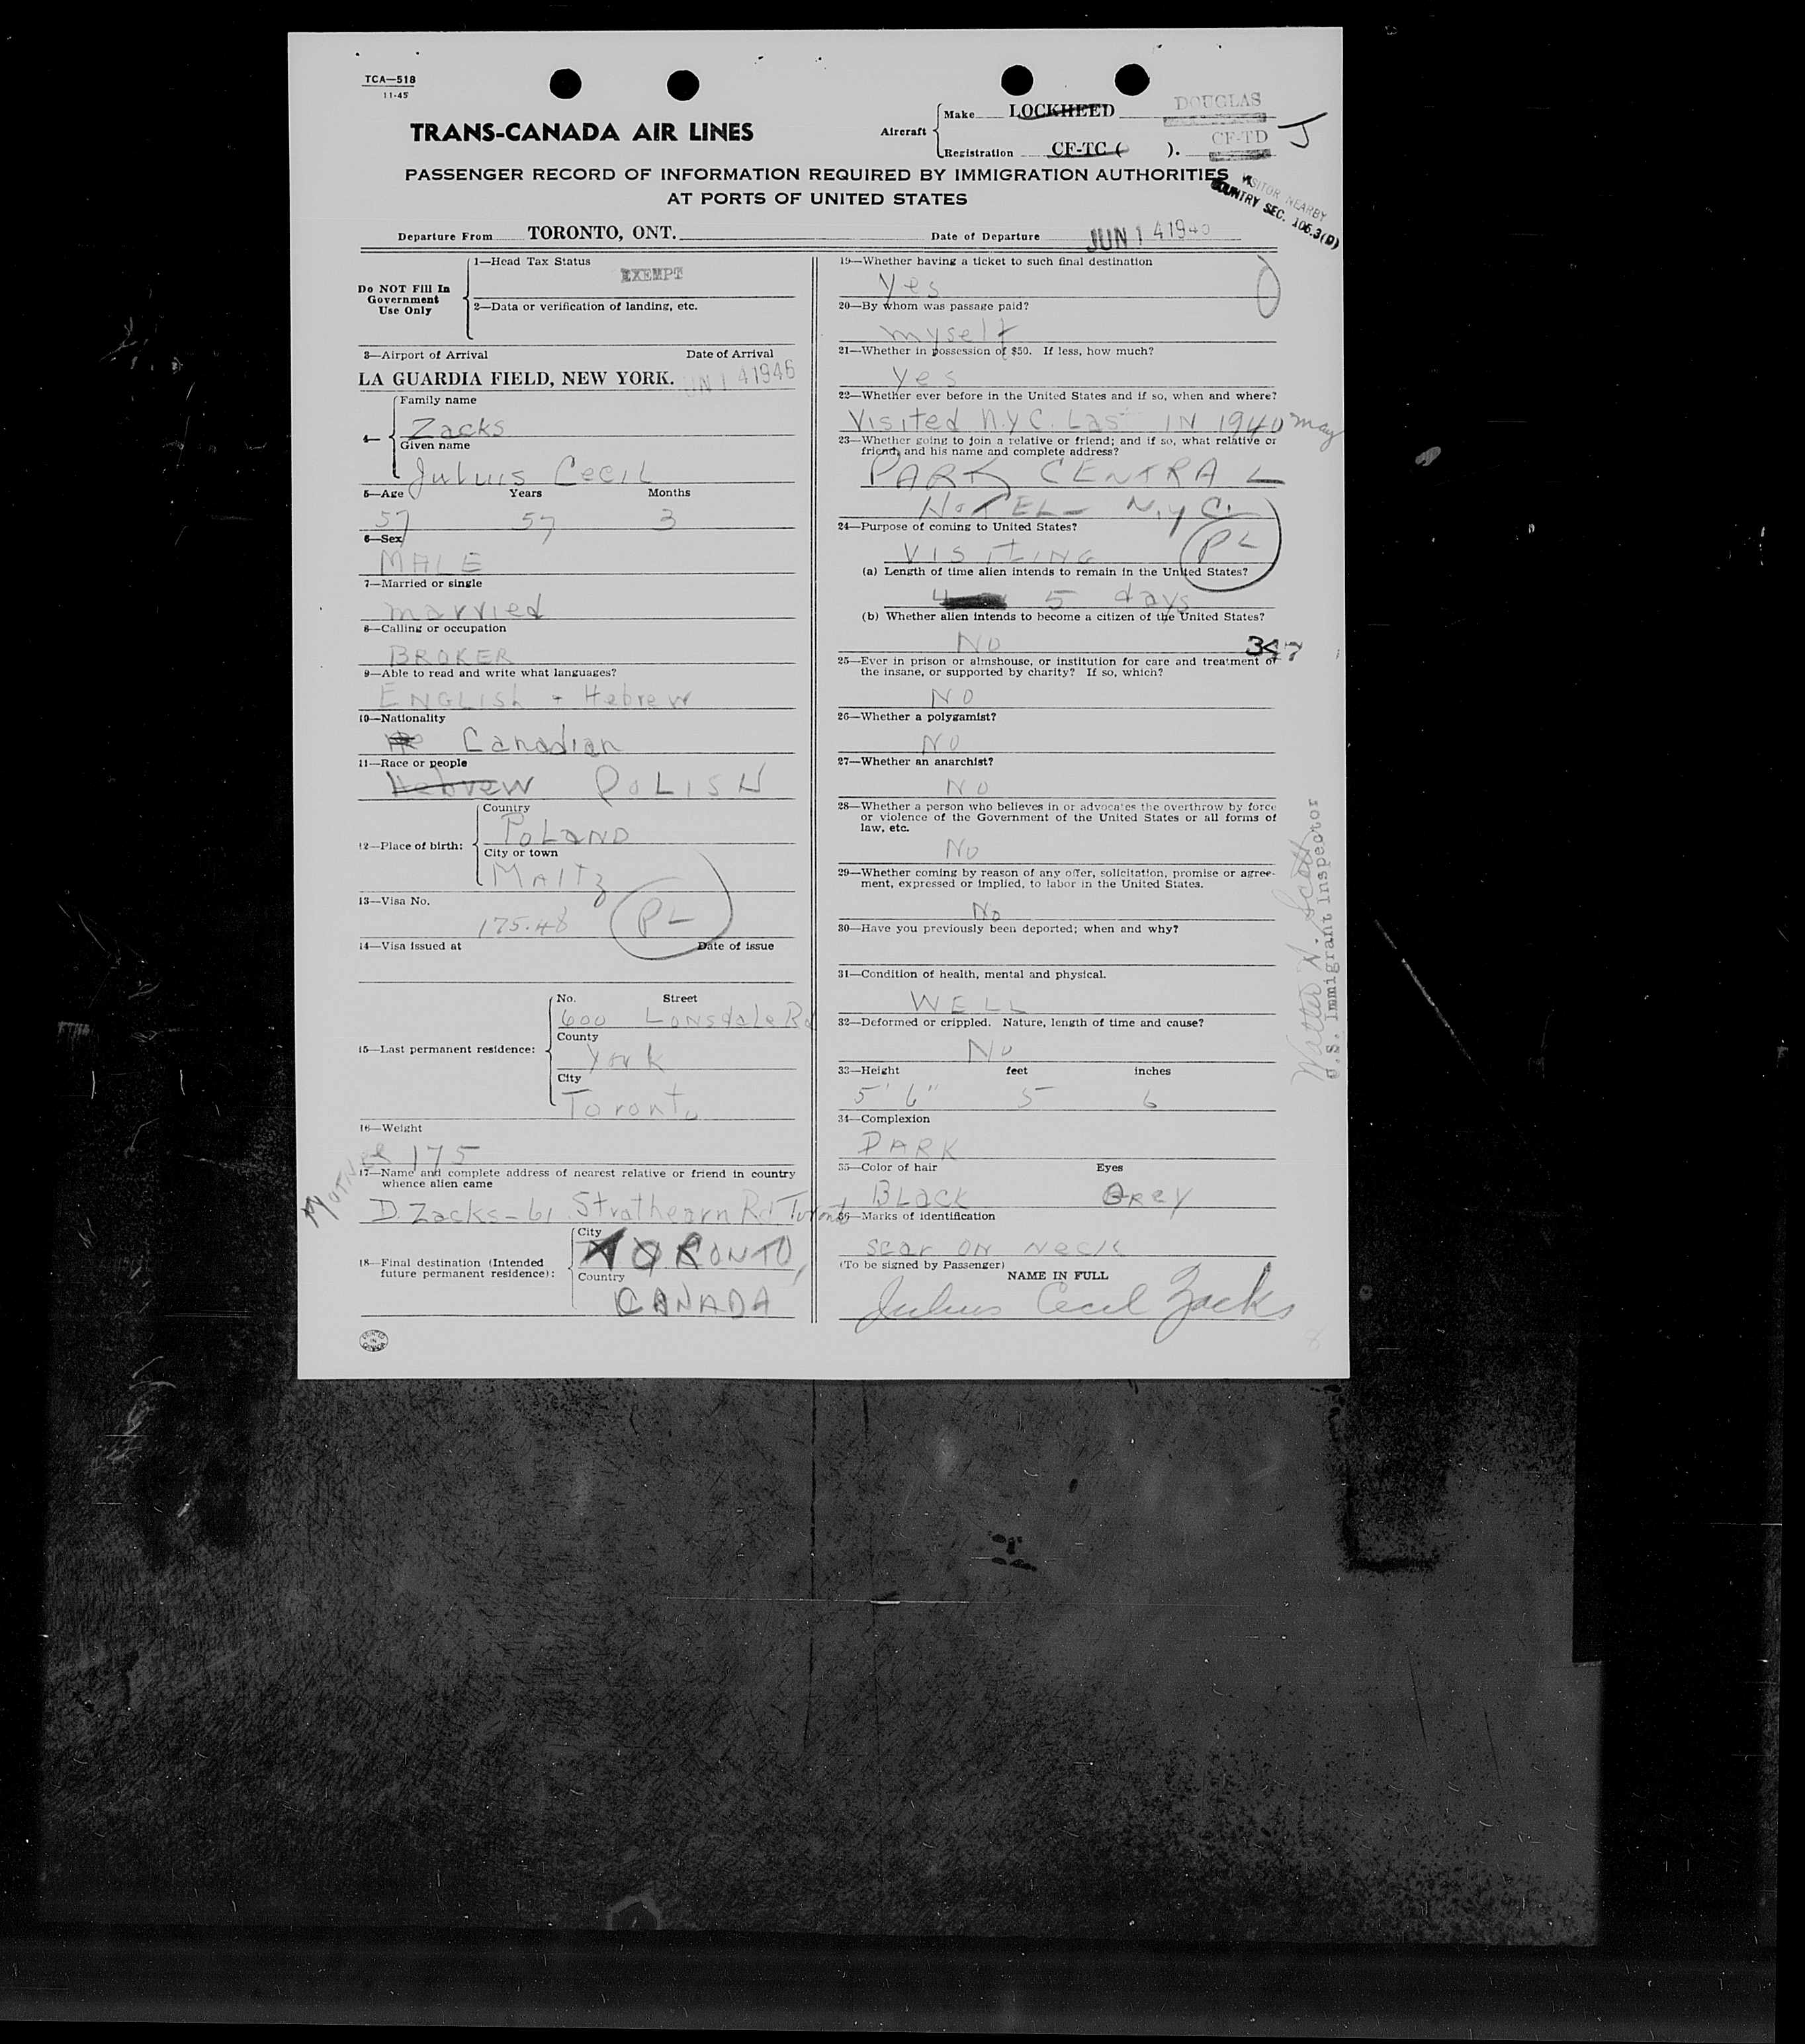 TCA—518
11-45
TRANS-CANADA AIR LINES
Aircraft
Make LOCKHEED DOUGLAS
Registration CF-TC ( ). CF-TD J
PASSENGER RECORD OF INFORMATION REQUIRED BY IMMIGRATION AUTHORITIES
AT PORTS OF UNITED STATES
VISITOR NEARBY
COUNTRY SEC. 106.3(D)
Departure From TORONTO, ONT.
Date of Departure JUN 14 1946
Do NOT Fill In
Government
Use Only
1—Head Tax Status
EXEMPT
2—Data or verification of landing, etc.
3—Airport of Arrival Date of Arrival
LA GUARDIA FIELD, NEW YORK. JUN 14 1946
4—
Family name
Zacks
Given name
Julius Cecil
5—Age Years Months
57 57 3
6—Sex
MALE
7—Married or single
married
8—Calling or occupation
BROKER
9—Able to read and write what languages?
ENGLISH + Hebrew
10—Nationality
Canadian
11—Race or people
Hebrew POLISH
12—Place of birth:
Country
POLAND
City or town
MALTZ
13—Visa No.
175.48 PL
14—Visa issued at Date of issue
15—Last permanent residence:
No. Street
600 Lonsdale Rd
County
York
City
Toronto
16—Weight
175
17—Name and complete address of nearest relative or friend in country
whence alien came
Mother
D. Zacks - 61 Strathearn Rd Toronto
18—Final destination (Intended
future permanent residence):
City
TORONTO,
Country
CANADA
19—Whether having a ticket to such final destination
Yes
20—By whom was passage paid?
myself
21—Whether in possession of $50. If less, how much?
yes
22—Whether ever before in the United States and if so, when and where?
Visited N.Y.C. Last IN 1940 may
23—Whether going to join a relative or friend; and if so, what relative or
friend, and his name and complete address?
PARK CENTRAL
HOTEL - N.Y.C.
24—Purpose of coming to United States?
VISITING PL
(a) Length of time alien intends to remain in the United States?
4 5 days
(b) Whether alien intends to become a citizen of the United States?
No 347
25—Ever in prison or almshouse, or institution for care and treatment of
the insane, or supported by charity? If so, which?
NO
26—Whether a polygamist?
NO
27—Whether an anarchist?
NO
28—Whether a person who believes in or advocates the overthrow by force
or violence of the Government of the United States or all forms of
law, etc.
No
29—Whether coming by reason of any offer, solicitation, promise or agree-
ment, expressed or implied, to labor in the United States.
No
30—Have you previously been deported; when and why?
31—Condition of health, mental and physical.
WELL
32—Deformed or crippled. Nature, length of time and cause?
No
33—Height feet inches
5' 6" 5 6
34—Complexion
DARK
35—Color of hair Eyes
BLACK GREY
36—Marks of identification
scar ON Neck
(To be signed by Passenger)
NAME IN FULL
Julius Cecil Zacks
Walter N. Scott
U.S. Immigrant Inspector